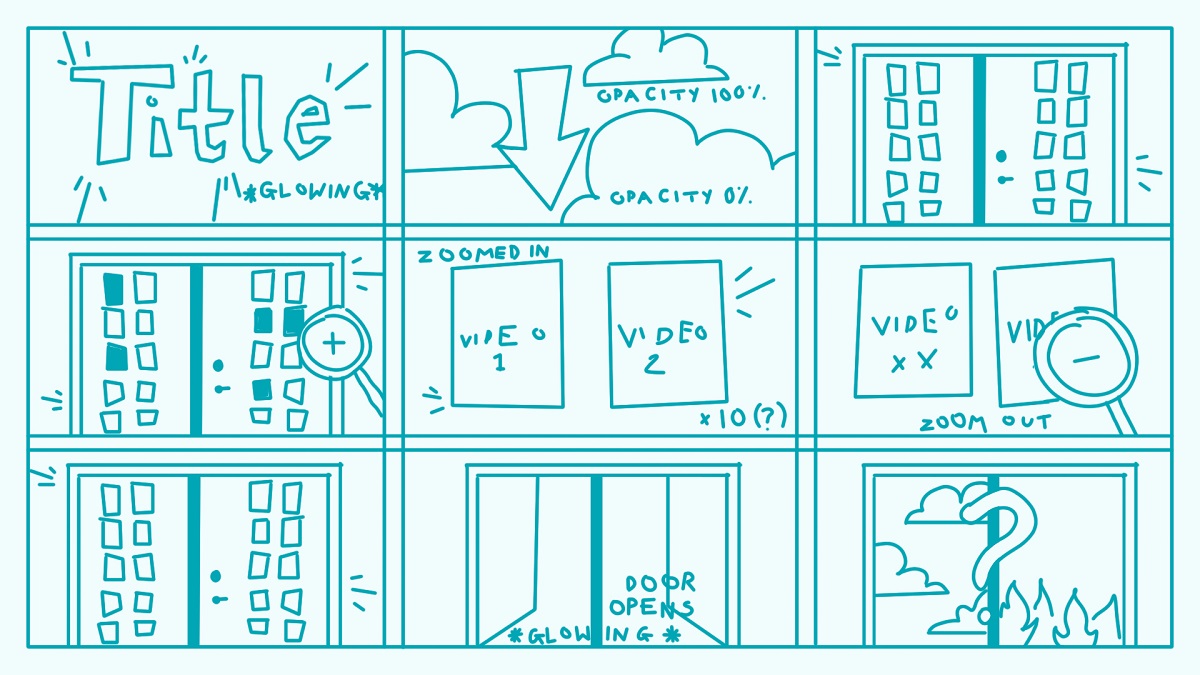 Title
*GLOWING*
OPACITY 100%.
OPACITY 0%.
ZOOMED IN
VIDEO
1
VIDEO
2
x10(?)
VIDEO
XX
VID
ZOOM OUT
DOOR
OPENS
*GLOWING*
?